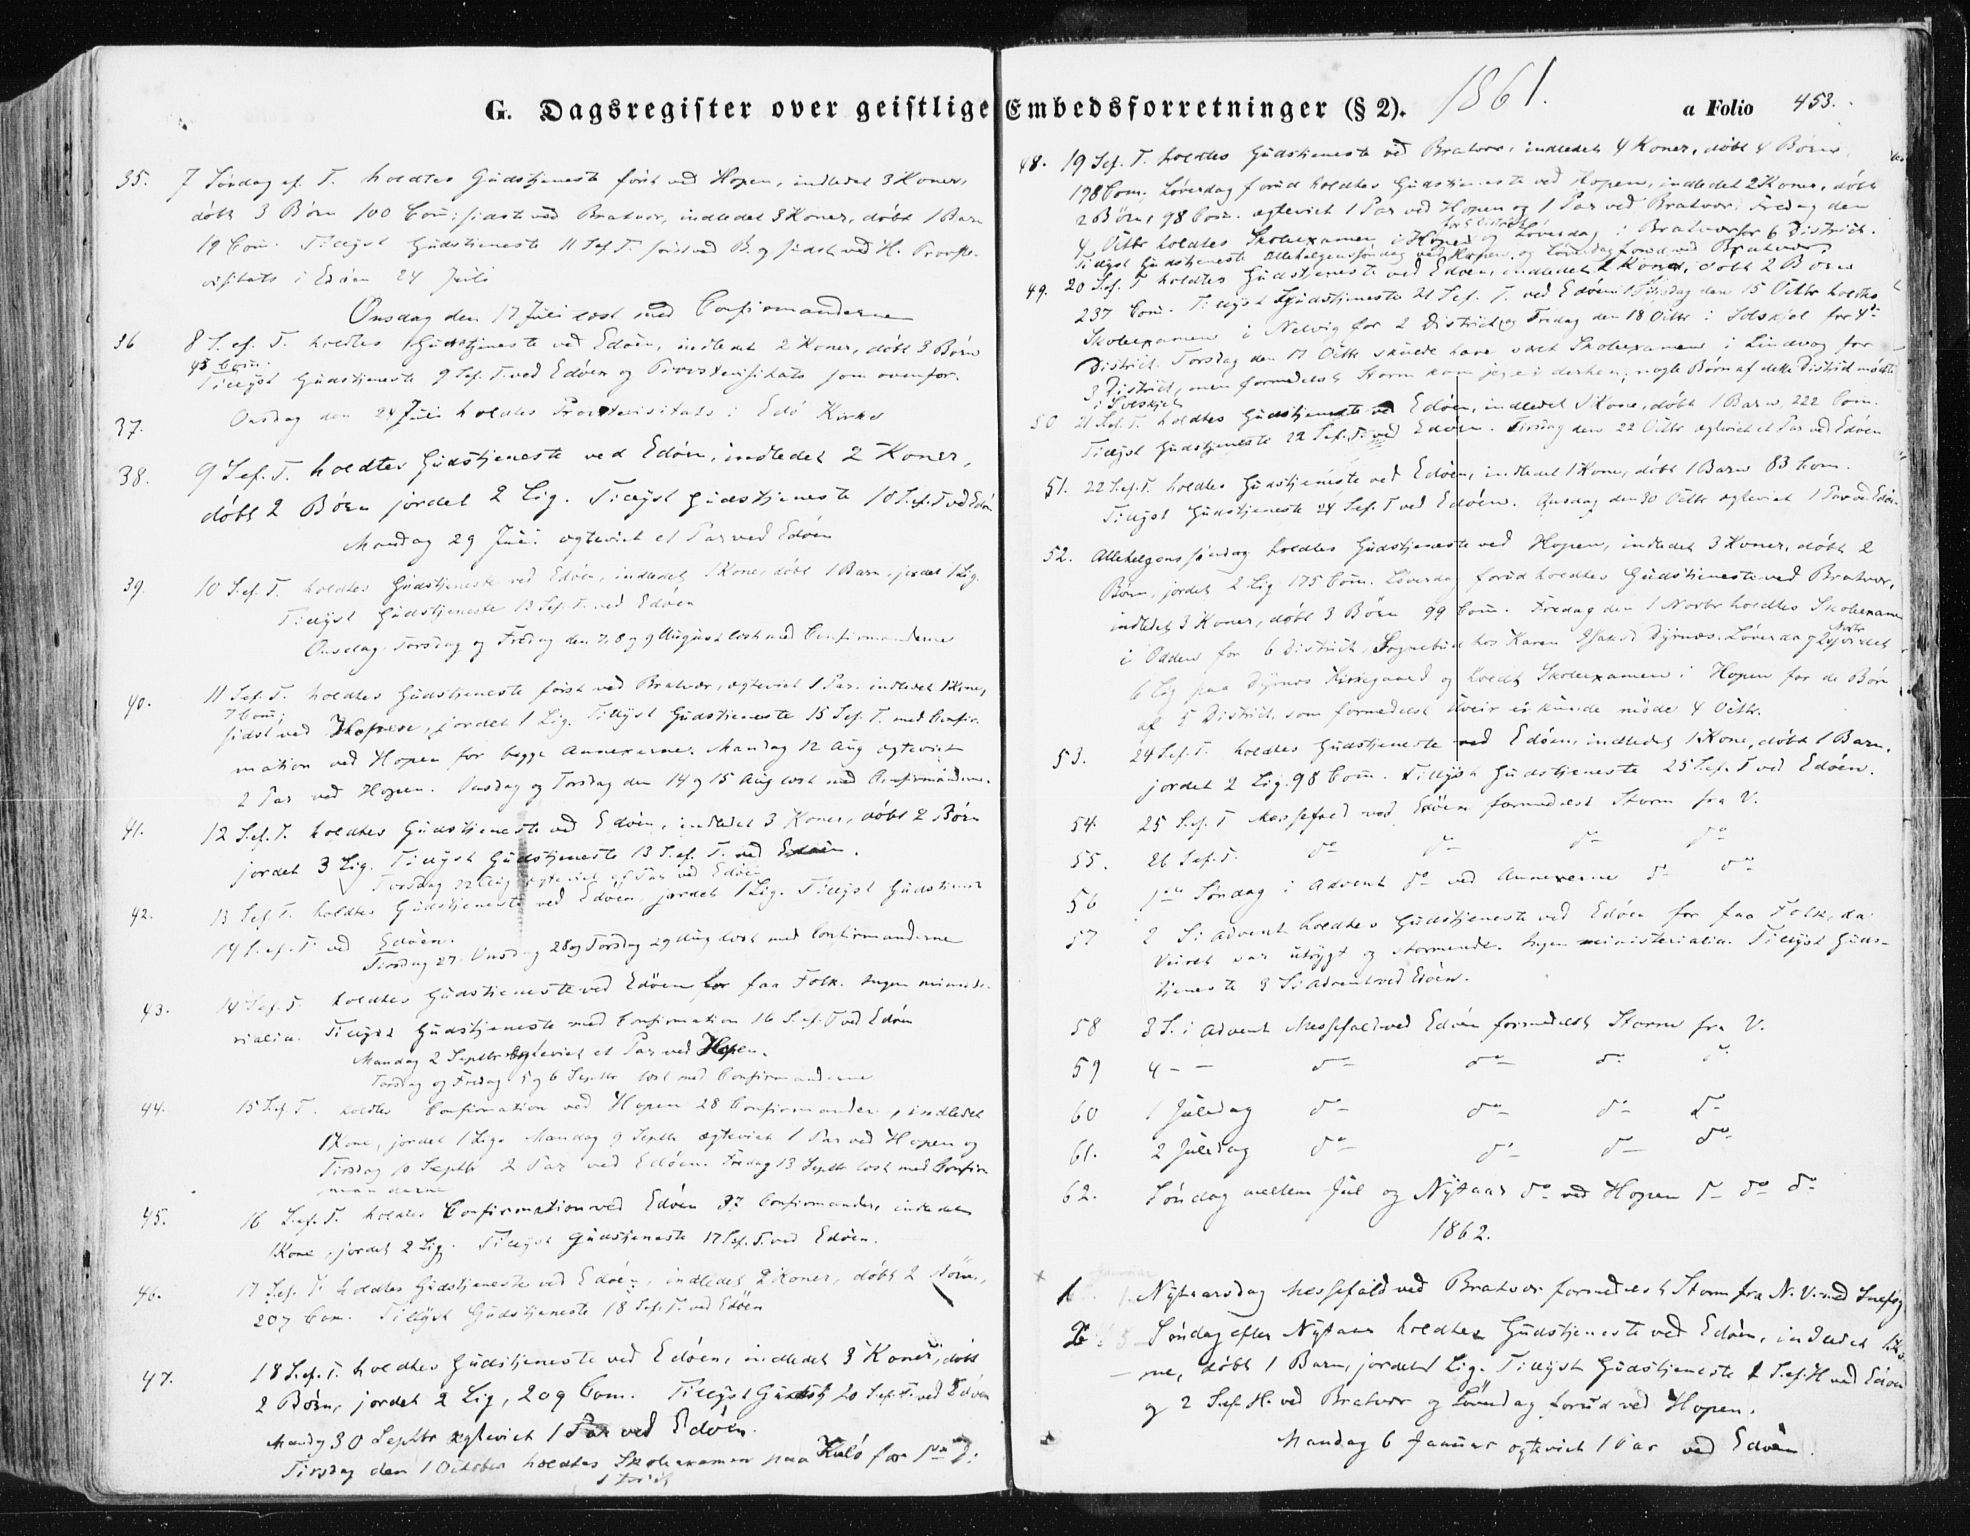 G. Dagsregister over geistlige Embedsforretninger (§ 2). 1861. a Folio 453.
35. 7 Søndag ef. T. holdtes Gudstjeneste først ved Hopen, indledet 3 Koner,
døbt 3 Børn 100 Com: sidst ved Bratvær, indledet 3 Koner, døbt 1 Barn
19 Com. Tillyst Gudstjeneste 11 S. ef. T. først ved B. og sidst ved H. Provste-
visitats i Edøen 24 Juli
Onsdag den 17 Juli læst med Confirmanderne
36 8 S. ef. T. holdtes Gudstjeneste ved Edøen, indledet 2 Koner, døbt 3 Børn
45 Com.
Tillyst Gudstjeneste 9 S. ef. T. ved Edøen og Provstevisitats som ovenfor.
37. Onsdag den 24 Juli holdtes Provstevisitats i Edø Kirke
38. 9 S. ef. T. holdtes Gudstjeneste ved Edøen, indledet 2 Koner,
døbt 2 Børn jordet 2 Lig. Tillyst Gudstjeneste 10 S. ef. T. ved Edøen
Mandag 29 Juli ægteviet et Par ved Edøen
39. 10 S. ef. T. holdtes Gudstjeneste ved Edøen, indledet 1 Kone, døbt 1 Barn, jordet 1 Lig.
Tillyst Gudstjeneste 12 S. ef. T. ved Edøen
Onsdag, Torsdag og Fredag den 7, 8 og 9 August læst med Confirmanderne
40. 11 S. ef. T. holdtes Gudstjeneste først ved Bratvær, ægteviet 1 Par. indledet 1 Kone,
7 Com,
sidst ved Hopen, jordet 1 Lig. Tillyst Gudstjeneste 15 S. ef. T. med Confir-
mation ved Hopen for begge Annexerne. Mandag 12 Aug ægteviet
2 Par ved Hopen. Onsdag og Torsdag den 14 og 15 Aug læst med Confirmanderne.
41. 12 S. ef. T. holdtes Gudstjeneste ved Edøen, indledet 3 Koner, døbt 2 Børn
jordet 3 Lig. Tillyst Gudstjeneste 13 S. ef. T. ved Edøen.
Torsdag 22 Aug ægteviet et Par ved Edøen
42. 13 S. ef. T. holdtes Gudstjeneste ved Edøen jordet 1 Lig. Tillyst Gudstjeneste
14 S. ef. T. ved Edøen.
Tirsdag 27. Onsdag 28 og Torsdag 29 Aug læst med Confirmanderne
43. 14 S. ef. T. holdtes Gudstjeneste ved Edøen for faa Folk. Ingen ministe-
rialia. Tillyst Gudstjeneste med Confirmation 16 S. ef. T. ved Edøen
Mandag 2 Septbr ægteviet et Par ved Hopen.
Torsdag og Fredag 5 og 6 Septbr læst med Confirmanderne
44. 15 S. ef. T. holdtes Confirmation ved Hopen 28 Confirmander, indledet
1 Kone, jordet 1 Lig. Mandag 9 Septbr ægteviet 1 Par ved Hopen og
Tirsdag 10 Septbr 2 Par ved Edøen. Fredag 13 Septbr læst med Confir
manderne
45. 16 S. ef. T. holdtes Confirmation ved Edøen 37 Confirmander, indledet
1 Kone, jordet 2 Lig. Tillyst Gudstjeneste 17 S. ef. T. ved Edøen.
46. 17 S. ef. T. holdtes Gudstjeneste ved Edøen, indledet 2 Koner, døbt 2 Børn,
207 Com. Tillyst Gudstjeneste 18 S. ef. T. ved Edøen
47. 18 S. ef. T. holdtes Gudstjeneste ved Edøen, indledet 3 Koner, døbt
2 Børn, jordet 2 Lig, 209 Com. Tillyst Gudstj 20 S. ef. T. ved Edøen
Mandag 30 Septbr ægteviet 1 Par ved Edøen.
Tirsdag den 1 October holdtes Skoleexamen paa Kulø for 1ste Di
strict
48. 19 S. ef. T. holdtes Gudstjeneste ved Bratvær, indledet 4 Koner, døbt 4 Børn,
198 Com. Løverdag forud holdtes Gudstjeneste ved Hopen, indledet 2 Koner, døbt
2 Børn, 98 Com. ægteviet 1 Par ved Hopen og 1 Par ved Bratvær. Fredag den
4 Octbr holdtes Skoleexamen i Hopen for 5 District og Løverdag i Bratvær for 6 District.
Tillyst Gudstjeneste Allehelgenssøndag ved Hopen og Løverdag forud ved Bratvær
49. 20 S. ef. T. holdtes Gudstjeneste ved Edøen, indledet 2 Koner, døbt 2 Børn
237 Com. Tillyst Gudstjeneste 21 S. ef. T. ved Edøen. Tirsdag den 15 Octbr holdtes
Skoleexamen i Nelvig for 2 District og Fredag den 18 Octbr i Solskjel for 4de
District. Torsdag den 17 Octbr skulde have været Skoleexamen i Lindvog for
3 District, men formedelst Storm kom jeg ei derhen; nogle Børn af dette District mødte
i Solskjel
50 21 S. ef. T. holdtes Gudstjeneste ved Edøen, indledet 1 Kone, døbt 1 Barn, 222 Com.
Tillyst Gudstjeneste 22 S. ef. T. ved Edøen. Tirsdag den 22 Octbr ægteviet et Par ved Edøen
51. 22 S. ef. T. holdtes Gudstjeneste ved Edøen, indledet 1 Kone, døbt 1 Barn 83 Com.
Tillyst Gudstjeneste 24 S. ef. T. ved Edøen. Onsdag den 30 Octbr ægteviet 1 Par ved Edøen
52. Allehelgenssøndag holdtes Gudstjeneste ved Hopen, indledet 3 Koner, døbt 2
Børn, jordet 2 Lig 175 Com. Løverdag forud holdtes Gudstjeneste ved Bratvær,
indledet 3 Koner, døbt 3 Børn 99 Com. Fredag den 1 Novbr holdtes Skoleexamen
i Odden for 6 District, Sognebud hos Karen Dyrnæs. Løverdag 2 Novbr jordet
6 Lig paa Dyrnæs Kirkegaard og holdt Skoleexamen i Hopen for de Børn
af 5 District, som formedelst Uveir ei kunde møde 4 Octbr.
53. 24 S. ef. T. holdtes Gudstjeneste ved Edøen, indledet 1 Kone, døbt 1 Barn,
jordet 2 Lig. 98 Com. Tillyst Gudstjeneste 25 S. ef. T. ved Edøen.
54. 25 S. ef. T Messefald ved Edøen formedelst Storm fra V.
55. 26 S. ef. T. do do do do
56 1ste Søndag i Advent do ved Annexerne do do
57 2 S. i Advent holdtes Gudstjeneste ved Edøen for faa Folk, da
Veiret var utrygt og stormende. Ingen ministerialia. Tillyst Guds-
tjeneste 3 S. i Advent ved Edøen.
58 3 S. i Advent Messefald ved Edøen formedelst Storm fra V.
59 4 - - do do do do
60 1 Juledag do do do do
61. 2 Juledag do do do do
62. Søndag mellem Jul og Nytaar do ved Hopen do do do
1862.
Januar
1. 1. Nytaarsdag Messefald ved Bratvær formedelst Storm fra N.V. med Snefog
2 Søndag efter Nytaar holdtes Gudstjeneste ved Edøen, indledet 1 Ko
ne, døbt 1 Barn, jordet 1 Lig. Tillyst Gudstjeneste 1 S. ef. H ved Edøen
og 2 S. ef. H. ved Bratvær og Løverdag forud ved Hopen.
Mandag 6 Januar ægteviet 1 Par ved Edøen.